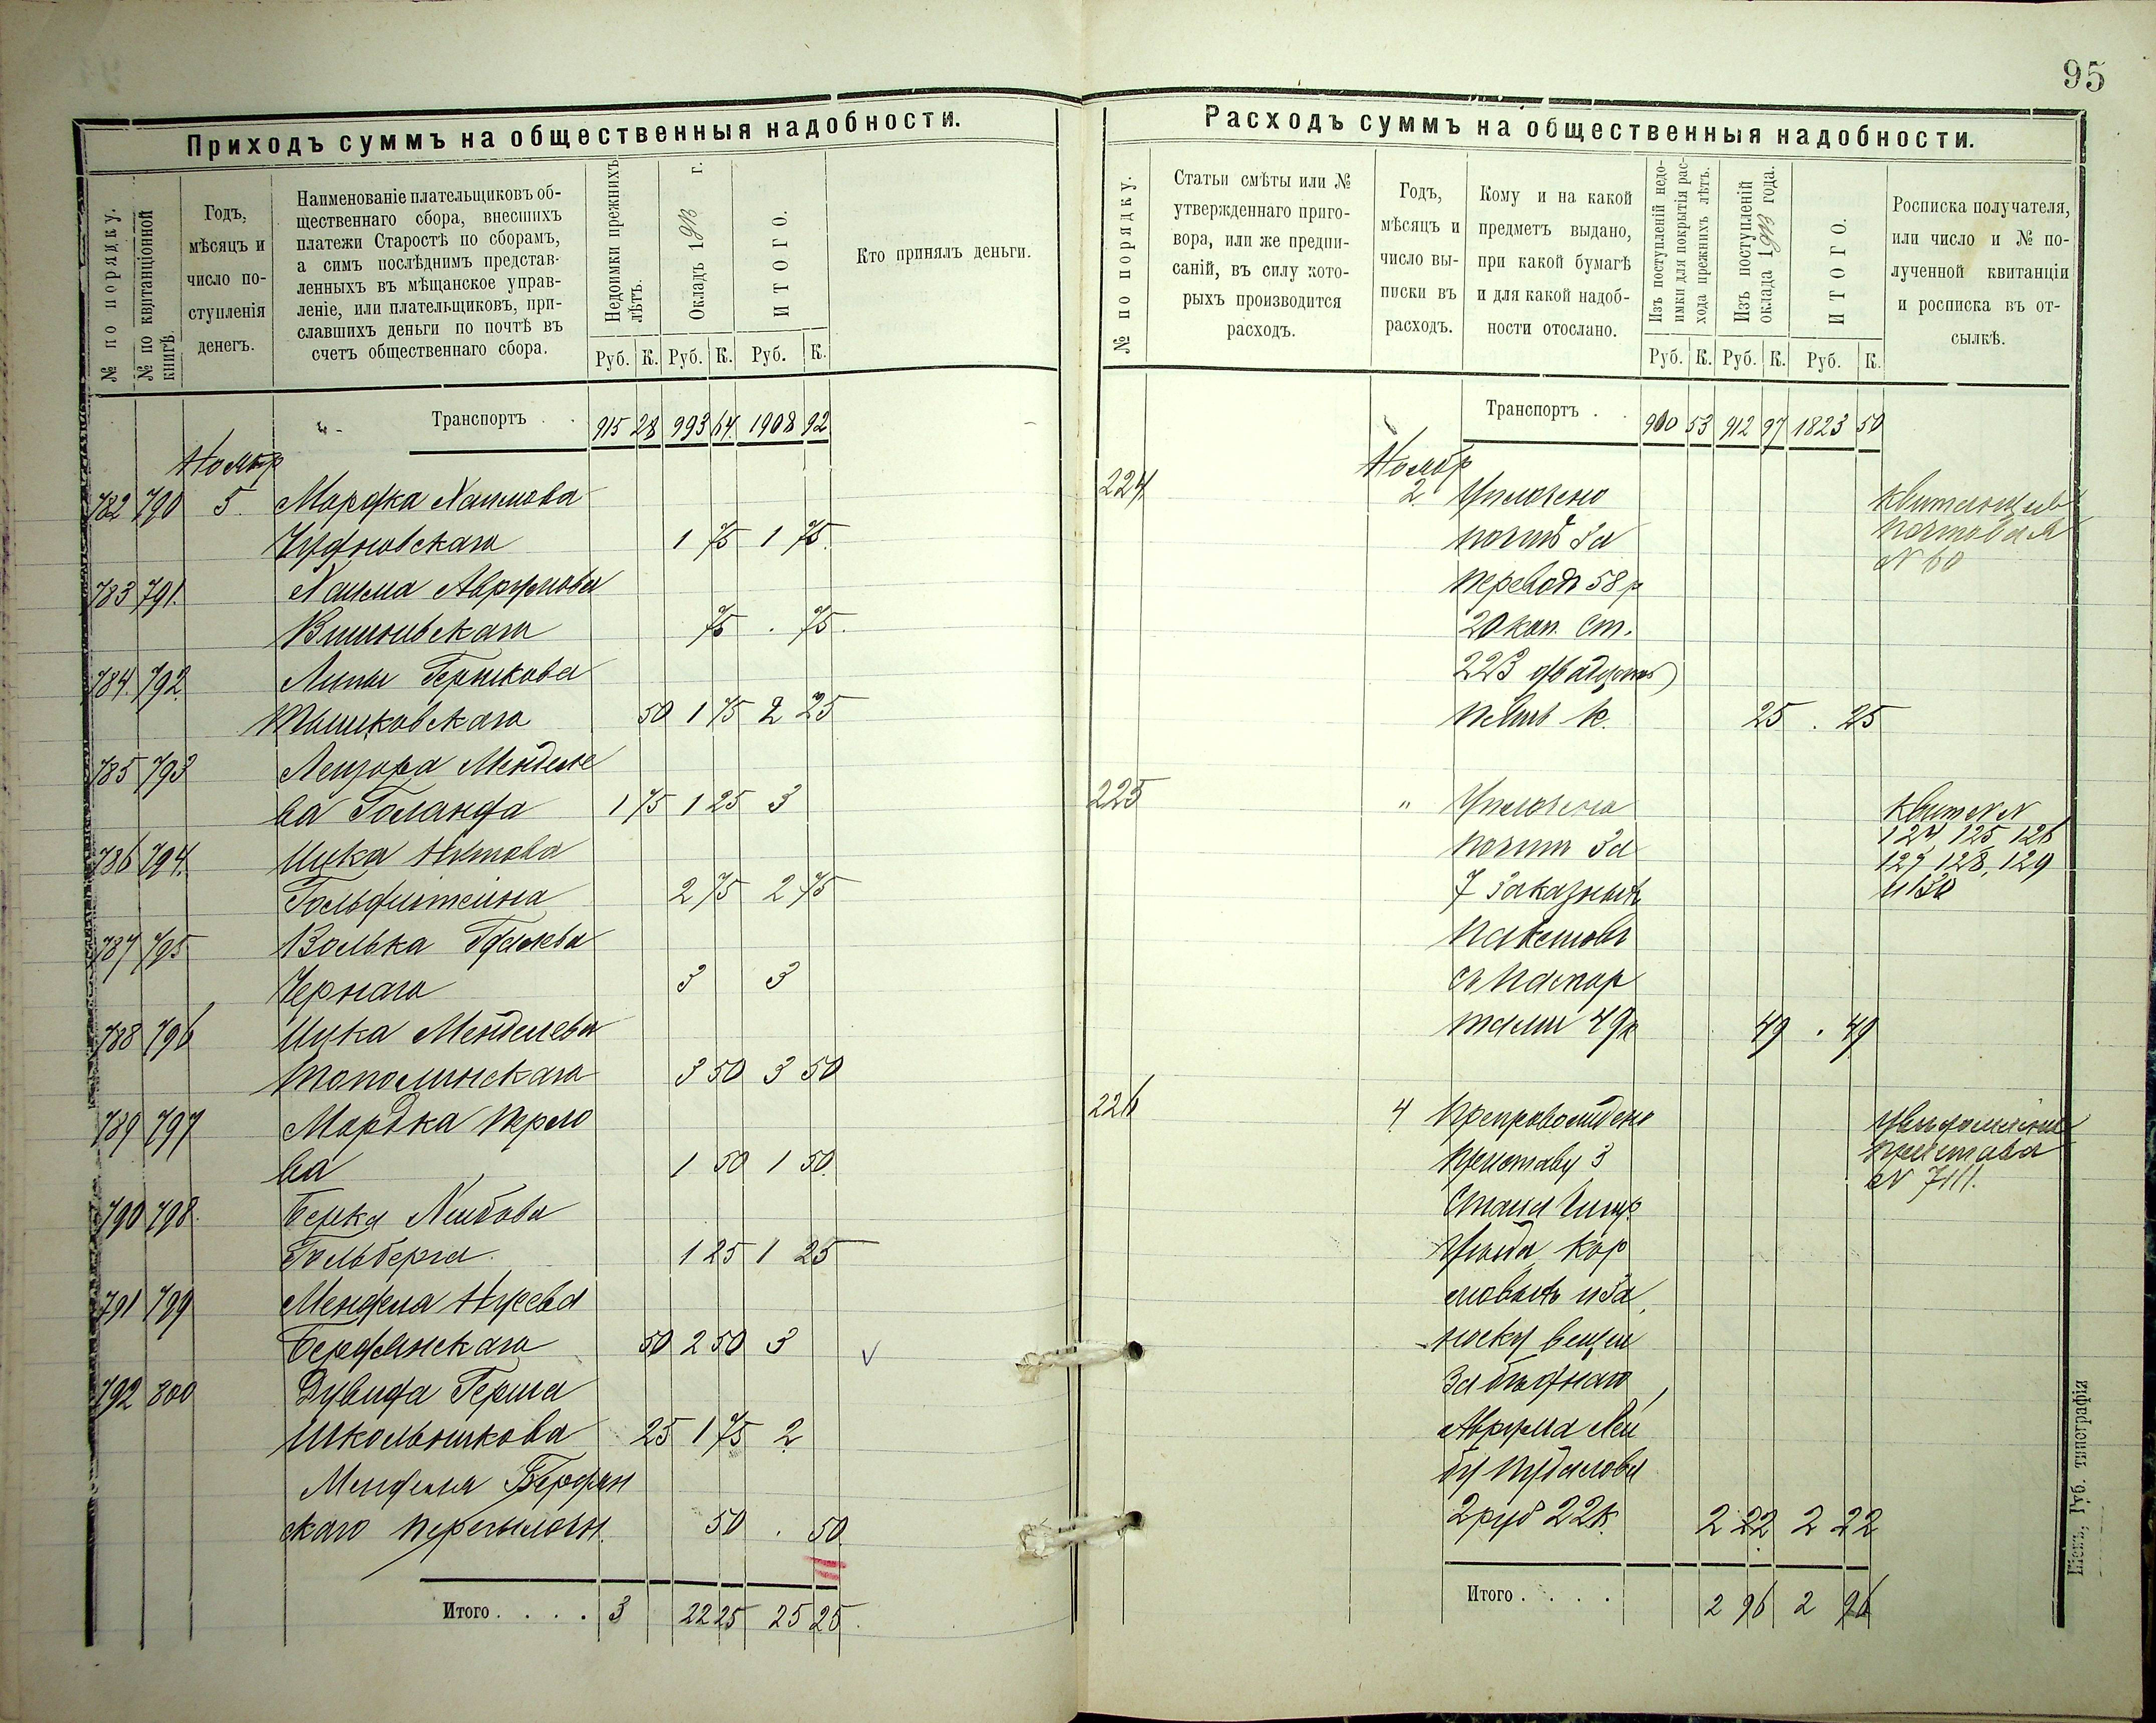 95
Приходъ суммъ на общественныя надобности.
№ по порядку.
№ по квитанціонной книгѣ.
Годъ,
мѣсяцъ и
число по-
ступленія
денегъ.
Наименованіе плательщиковъ об-
щественнаго сбора, внесшихъ
платежи Старостѣ по сборамъ,
а симъ послѣднимъ представ-
ленныхъ въ мѣщанское управ-
леніе, или плательщиковъ, при-
славшихъ деньги по почтѣ въ
счетъ общественнаго сбора.
Недоимки прежнихъ лѣтъ.
Окладъ 1913 г.
ИТОГО.
Руб. К. Руб. К. Руб. К.
Кто принялъ деньги.
Транспортъ . . 915 28 993 64 1908 92
Ноябр
782 790 5 Мордка Хаимова
Чудновскаго 1 75 1 75
783 791 Хаима Аврумова
Вишневскаго 75 . 75
784 792 Липы Гершкова
Тышковскаго 50 1 75 2 25
785 793 Лейзора Менделе
ва Голанда 1 75 1 25 3
786 794 Ицка Нутова
Гольдштейна 2 75 2 75
787 795 Волька
Чернаго 3 3
788 796 Ицка Менделева
Тополинскаго 3 50 3 50
789 797 Мордка Перло
ва 1 50 1 50
790 798 Берка Лейбова
Гольберга 1 25 1 25
791 799 Мендля
Бердянскаго 50 2 50 3
792 800 Дувида Герша
Школьникова 25 1 75 2
Менделя Бердян
скаго 50 . 50
Итого . . . . 3 22 25 25 25
Расходъ суммъ на общественныя надобности.
№ по порядку.
Статьи смѣты или №
утвержденнаго приго-
вора, или же предпи-
саній, въ силу кото-
рыхъ производится
расходъ.
Годъ,
мѣсяцъ и
число вы-
писки въ
расходъ.
Кому и на какой
предметъ выдано,
при какой бумагѣ
и для какой надоб-
ности отослано.
Изъ поступленій недо-
имки для покрытія рас-
хода прежнихъ лѣтъ.
Изъ поступленій
оклада 1913 года.
ИТОГО.
Руб. К. Руб. К. Руб. К.
Росписка получателя,
или число и № по-
лученной квитанціи
и росписка въ от-
сылкѣ.
Транспортъ . . 910 53 912 97 1823 50
Ноябр
224 2 Уплочено
почтѣ за
переводъ 58 р
20 коп. ст.
223 двадцать
пять к. 25 . 25
Квитанція
почтовая
№ 60
225 " Уплочено
почтѣ за
7 заказныхъ
пакетовъ
съ паспор
тами 49 к 49 . 49
Квит № №
124, 125, 126
127, 128, 129
и 130
226 4 Препровождено
Приставу 3
Стана
уѣзда кор
мовыхъ и за
носку вещей
за бѣднаго
Аврума Лей
бу
2 руб 22 к. 2 22 2 22
пристава
№ 7111.
Итого . . . . 2 96 2 96
Кіевъ, Губ. типографія